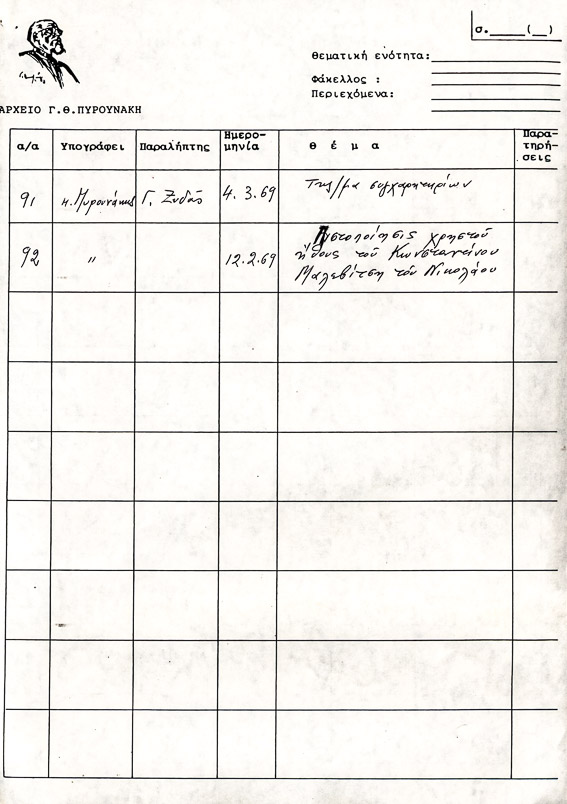 σ.____(__)
Θεματική ενότητα:
Φάκελλος :
Περιεχόμενα:
ΑΡΧΕΙΟ Γ.Θ.ΠΥΡΟΥΝΑΚΗ
α/α Υπογράφει Παραλήπτης Ημερο-μηνία θ έ μ α Παρα-τηρή-σεις
91 π. Πυρουνάκης Γ. Ξυδάς 4.3.69 Τηλ/μα συγχαρητηρίων
92 〃 12.2.69 Πιστοποίησις χρηστοῦ
ἤθους τοῦ Κωνσταντίνου
Μαλεβίτση τοῦ Νικολάου